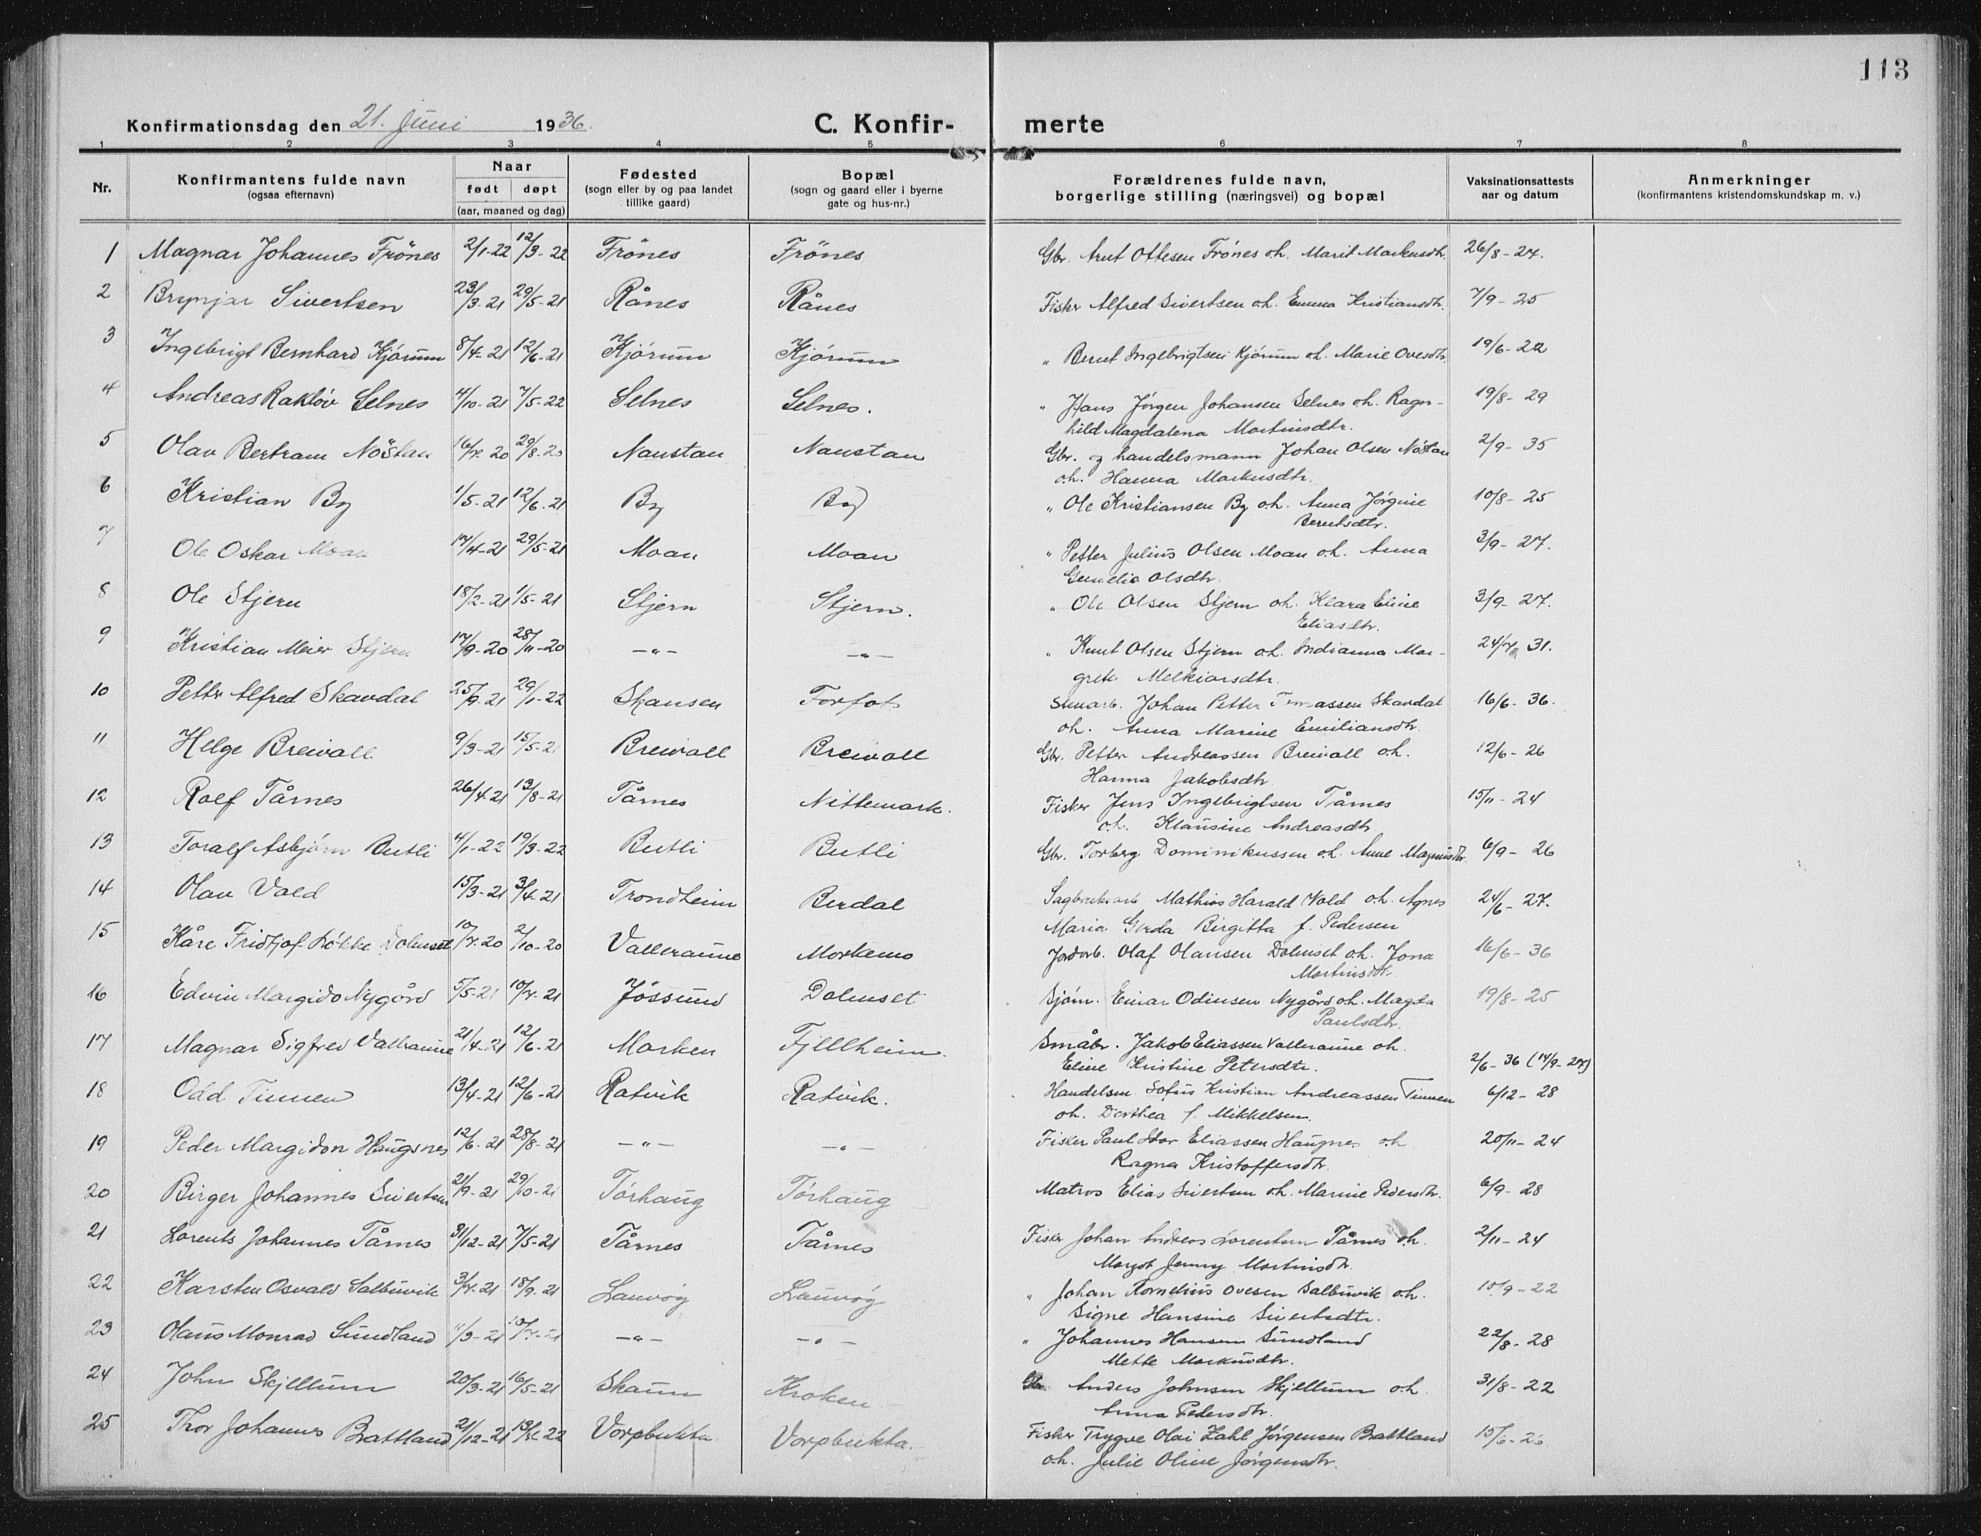 113
Konfirmationsdag den 21. Juni 1936.
C. Konfir- merte
1 2 3 4 5 6 7 8
Nr. Konfirmantens fulde navn (ogsaa efternavn) Naar født døpt (aar, maaned og dag) Fødested (sogn eller by og paa landet tillike gaard) Bopæl (sogn og gaard eller i byerne gate og hus-nr.) Forældrenes fulde navn, borgerlige stilling (næringsvei) og bopæl Vaksinationsattests aar og datum Anmerkninger (konfirmantens kristendomskundskap m. v.)
1 Magnar Johannes Frönes 2/1-22 12/3-22 Frönes Frönes Gbr. Arnt Ottesen Frónes o.h. Marit Markusdtr. 26/8-24.
2 Brynjar Sivertsen 23/3-21 29/5-21 Rånes Rånes Fisker Alfred Sivertsen o.h. Emma Kristiansdtr. 7/9-25
3 Ingebrigt Bernhard Kjørum 8/4-21 12/6-21 Kjórum Kjórum " Bernt Ingebrigtsen Kjórum o.h. Marie Ovesdtr. 19/6-22
4 Andreas Rakløv Selnes 4/10-21 7/5-22 Selnes Selnes. " Hans Jørgen Johansen Selnes o.h. Ragn-
hild Magdalena Martinsdtr. 19/8-29
5 Olav Bertram Nöstan 16/7-20 29/8-20 Naustan Naustan Gbr. og handelsmann Johan Olsen Nöstan
o.h. Hanna Markusdtr. 2/9-35
6 Kristian By 1/5-21 12/6-21 By By " Ole Kristiansen By o.h. Anna Jørgine
Berntsdtr. 10/8-25
7 Ole Oskar Moan 17/4-21 29/5-21 Moan Moan " Petter Julius Olsen Moan o.h. Anna
Olsdtr. 3/9-27.
8 Ole Stjern 18/2-21 1/5-21 Stjern Stjern. " Ole Olsen Stjern o.h. Klara Eline
Eliasdtr. 3/9-27.
9 Kristian Meier Stjern 17/9-20 28/11-20 -"- -"- " Knut Olsen Stjern o.h. Indianna Mar-
grete Melkiorsdtr. 24/7-31.
10 Petter Alfred Skavdal 25/9-21 29/1-22 Skansen Forfot Johan Petter Skavdal
o.h. Anna Marine Emiliansdtr. 16/6-36.
11 Helge Breivoll 9/3-21 15/5-21 Breivoll Breivoll Gbr. Petter Andreassen Breivoll o.h.
Hanna Jakobsdtr. 12/6-26
12 Rolf Tårnes 26/4-21 13/8-21 Tårnes Nittemark. Fisker Jens Ingebrigtsen Tårnes
o.h. Klausine Andreasdtr. 15/11-24
13 Toralf Asbjørn Butli 4/1-22 19/3-22 Butli Butli Gbr. Torberg Dominikussen o.h. Anne Magnusdtr. 6/9-26
14 Olav Vold 15/3-21 3/4-21 Trondheim Berdal Sagbruksarb. Mathias Harald Vold o.h. Agnes
Maria Gerda Birgitta f. Pedersen 24/6-27.
15 Kåre Fridtjof Løkke Dolmset 10/7-20 2/10-20 Valleraune Morkemo Jordarb. Olaf Olausen Dolmset o.h. Jona
Martinsdtr. 16/6-36
16 Edvin Margido Nygård 5/5-21 10/7-21 Jössund Dolmset Sjøm. Einar Odinsen Nygård o.h. Magda
Paulsdtr. 19/8-25
17 Magnar Sigfred Valleraune 21/4-21 12/6-21 Morken Fjellheim. Småbr. Jakob Eliassen Valleraune o.h.
Eline Kristine Petersdtr. 2/6-36 (14/9-27)
18 Odd Tinnen 13/4-21 12/6-21 Ratvik Ratvik. Handelsm. Sofus Kristian Andreassen Tinnen
o.h. Dorthea f. Mikkelsen. 6/12-28
19 Peder Margidon Haugsnes 12/6-21 28/8-21 -"- -"- Fisker Paul Eliassen Haugnes o.h
Ragna Kristoffersdtr. 20/11-24
20 Birger Johannes Sivertsen 21/9-21 29/10-21 Tórhaug Tórhaug Matros Elias Sivertsen o.h. Marine Pedersdtr. 6/9-28
21 Lorents Johannes Tårnes 31/12-21 7/5-21 Tårnes Tårnes Fisker Johan Andreas Lorentsen Tårnes o.h.
Margot Jenny Martinsdtr. 2/11-24
22 Karsten Osvald Salbuvik 3/7-21 18/9-21 Lauvøy Lauvøy " Johan Kornelius Ovesen Salbuvik o.h.
Signe Hansine Sivertsdtr. 15/9-22
23 Olaus Monrad Sundland 11/3-21 10/7-21 -"- -"- " Johannes Hansen Sundland
Mette Markusdtr. 22/8-28
24 John Skjellum 20/3-21 16/5-21 Skaun Kroken Anders Johnsen Skjellum o.h
Anna Pedersdtr. 31/8-22
25 Thor Johannes Brattland 21/12-21 Vorpbukta Vorpbukta. Fisker Trygve Olai Zahl Jørgensen Brattland
o.h. Julie Oline Jørgensdtr. 15/6-26